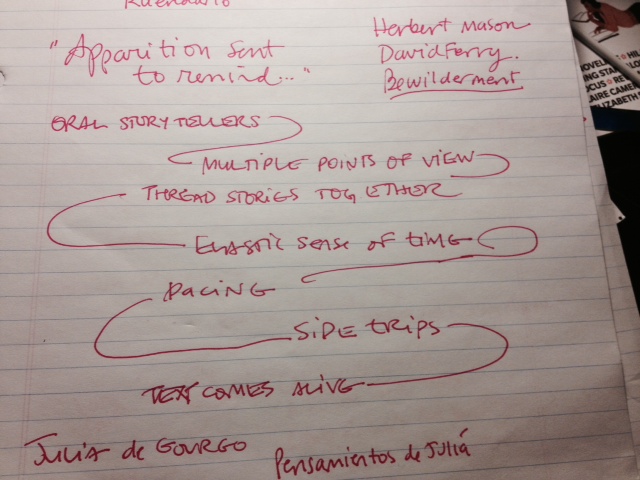 "Apparition sent
to remind..."
Herbert Mason
David Ferry.
Bewilderment
ORAL STORYTELLERS
MULTIPLE POINTS OF VIEW
THREAD STORIES TOGETHER
ELASTIC SENSE OF TIME
PACING
SIDE TRIPS
TEXT COMES ALIVE
JULIA de GOURGO
Pensamientos de Juliá
NOVEL
ING STA
OCUS
RE
AIRE CAME
ELIZABETH